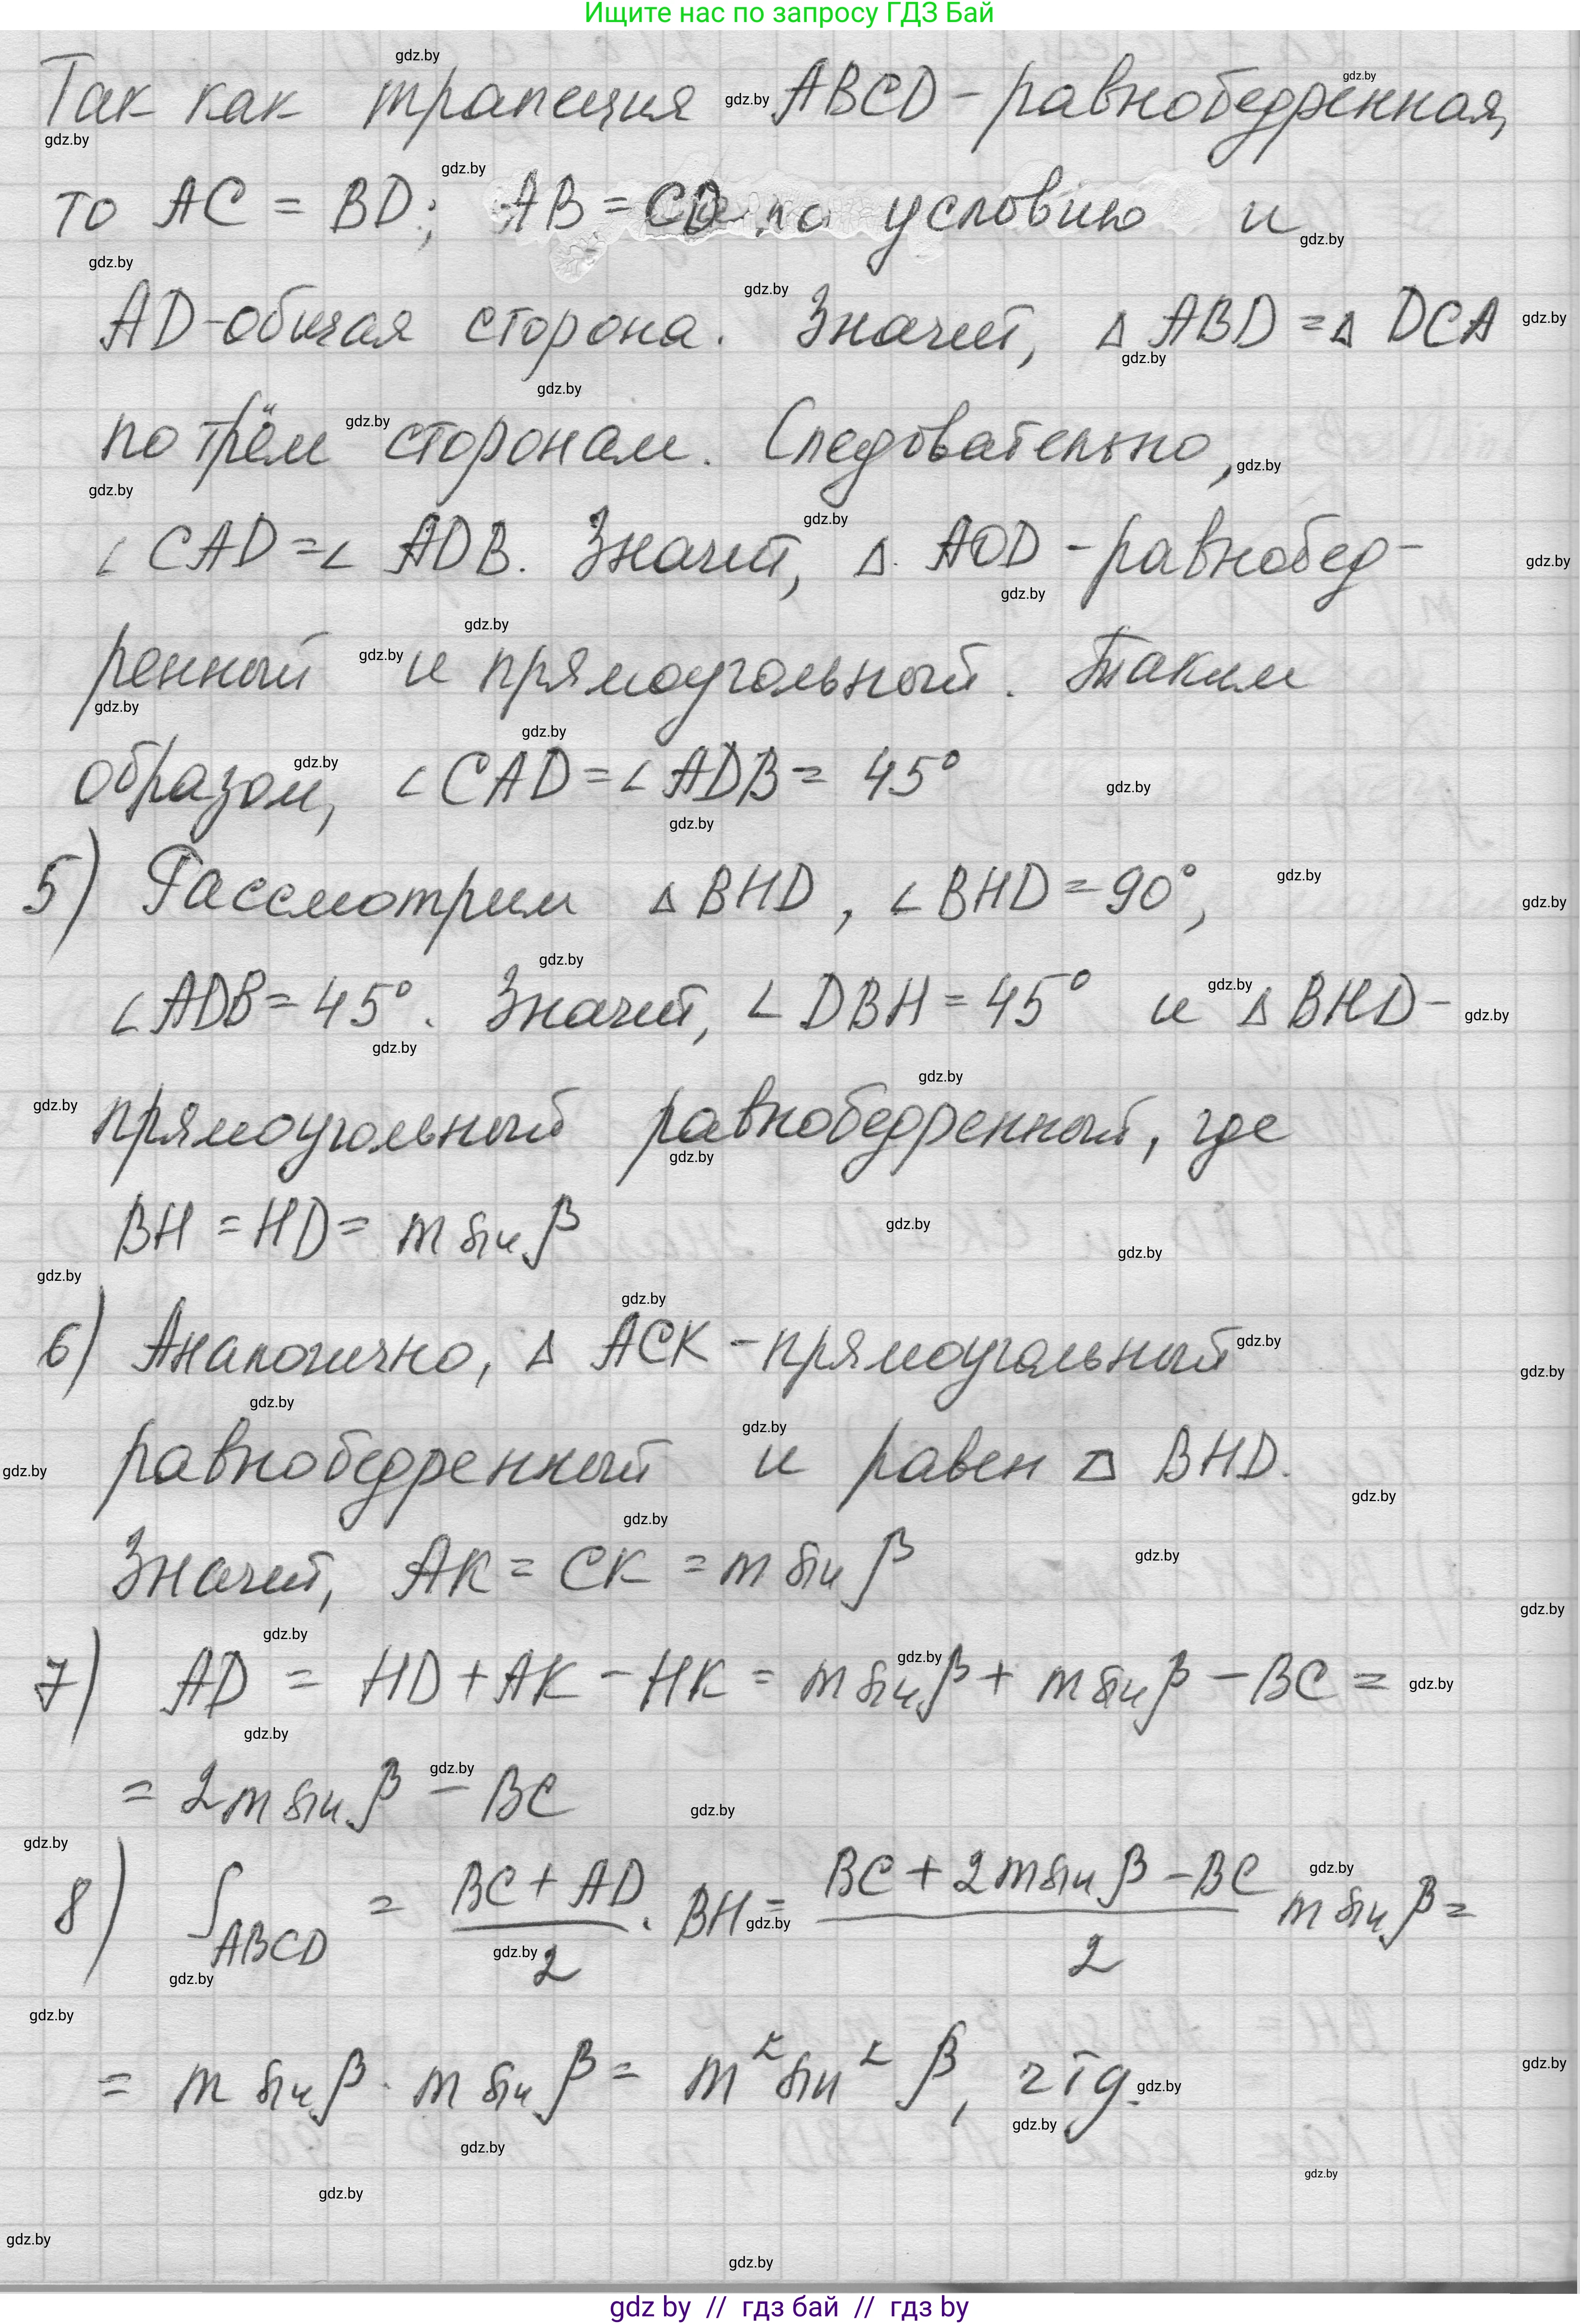 Ищите нас по запросу ГДЗ Бай
Так как трапеция ABCD - равнобедренная,
то AC = BD; AB = CD по условию и
AD - общая сторона. Значит, Δ ABD = Δ DCA
по трём сторонам. Следовательно,
∠ CAD = ∠ ADB. Значит, Δ AOD - равнобед-
ренный и прямоугольный. Таким
образом, ∠ CAD = ∠ ADB = 45°
5) Рассмотрим Δ BHD, ∠ BHD = 90°,
∠ ADB = 45°. Значит, ∠ DBH = 45° и Δ BHD -
прямоугольный равнобедренный, где
BH = HD = m sin β
6) Аналогично, Δ ACK - прямоугольный
равнобедренный и равен Δ BHD.
Значит, AK = CK = m sin β
7) AD = HD + AK - HK = m sin β + m sin β - BC =
= 2m sin β - BC
8) S_ABCD = (BC + AD)/2 · BH = (BC + 2m sin β - BC)/2 m sin β =
= m sin β · m sin β = m² sin² β, чтд.
gdz by // гдз бай // гдз by